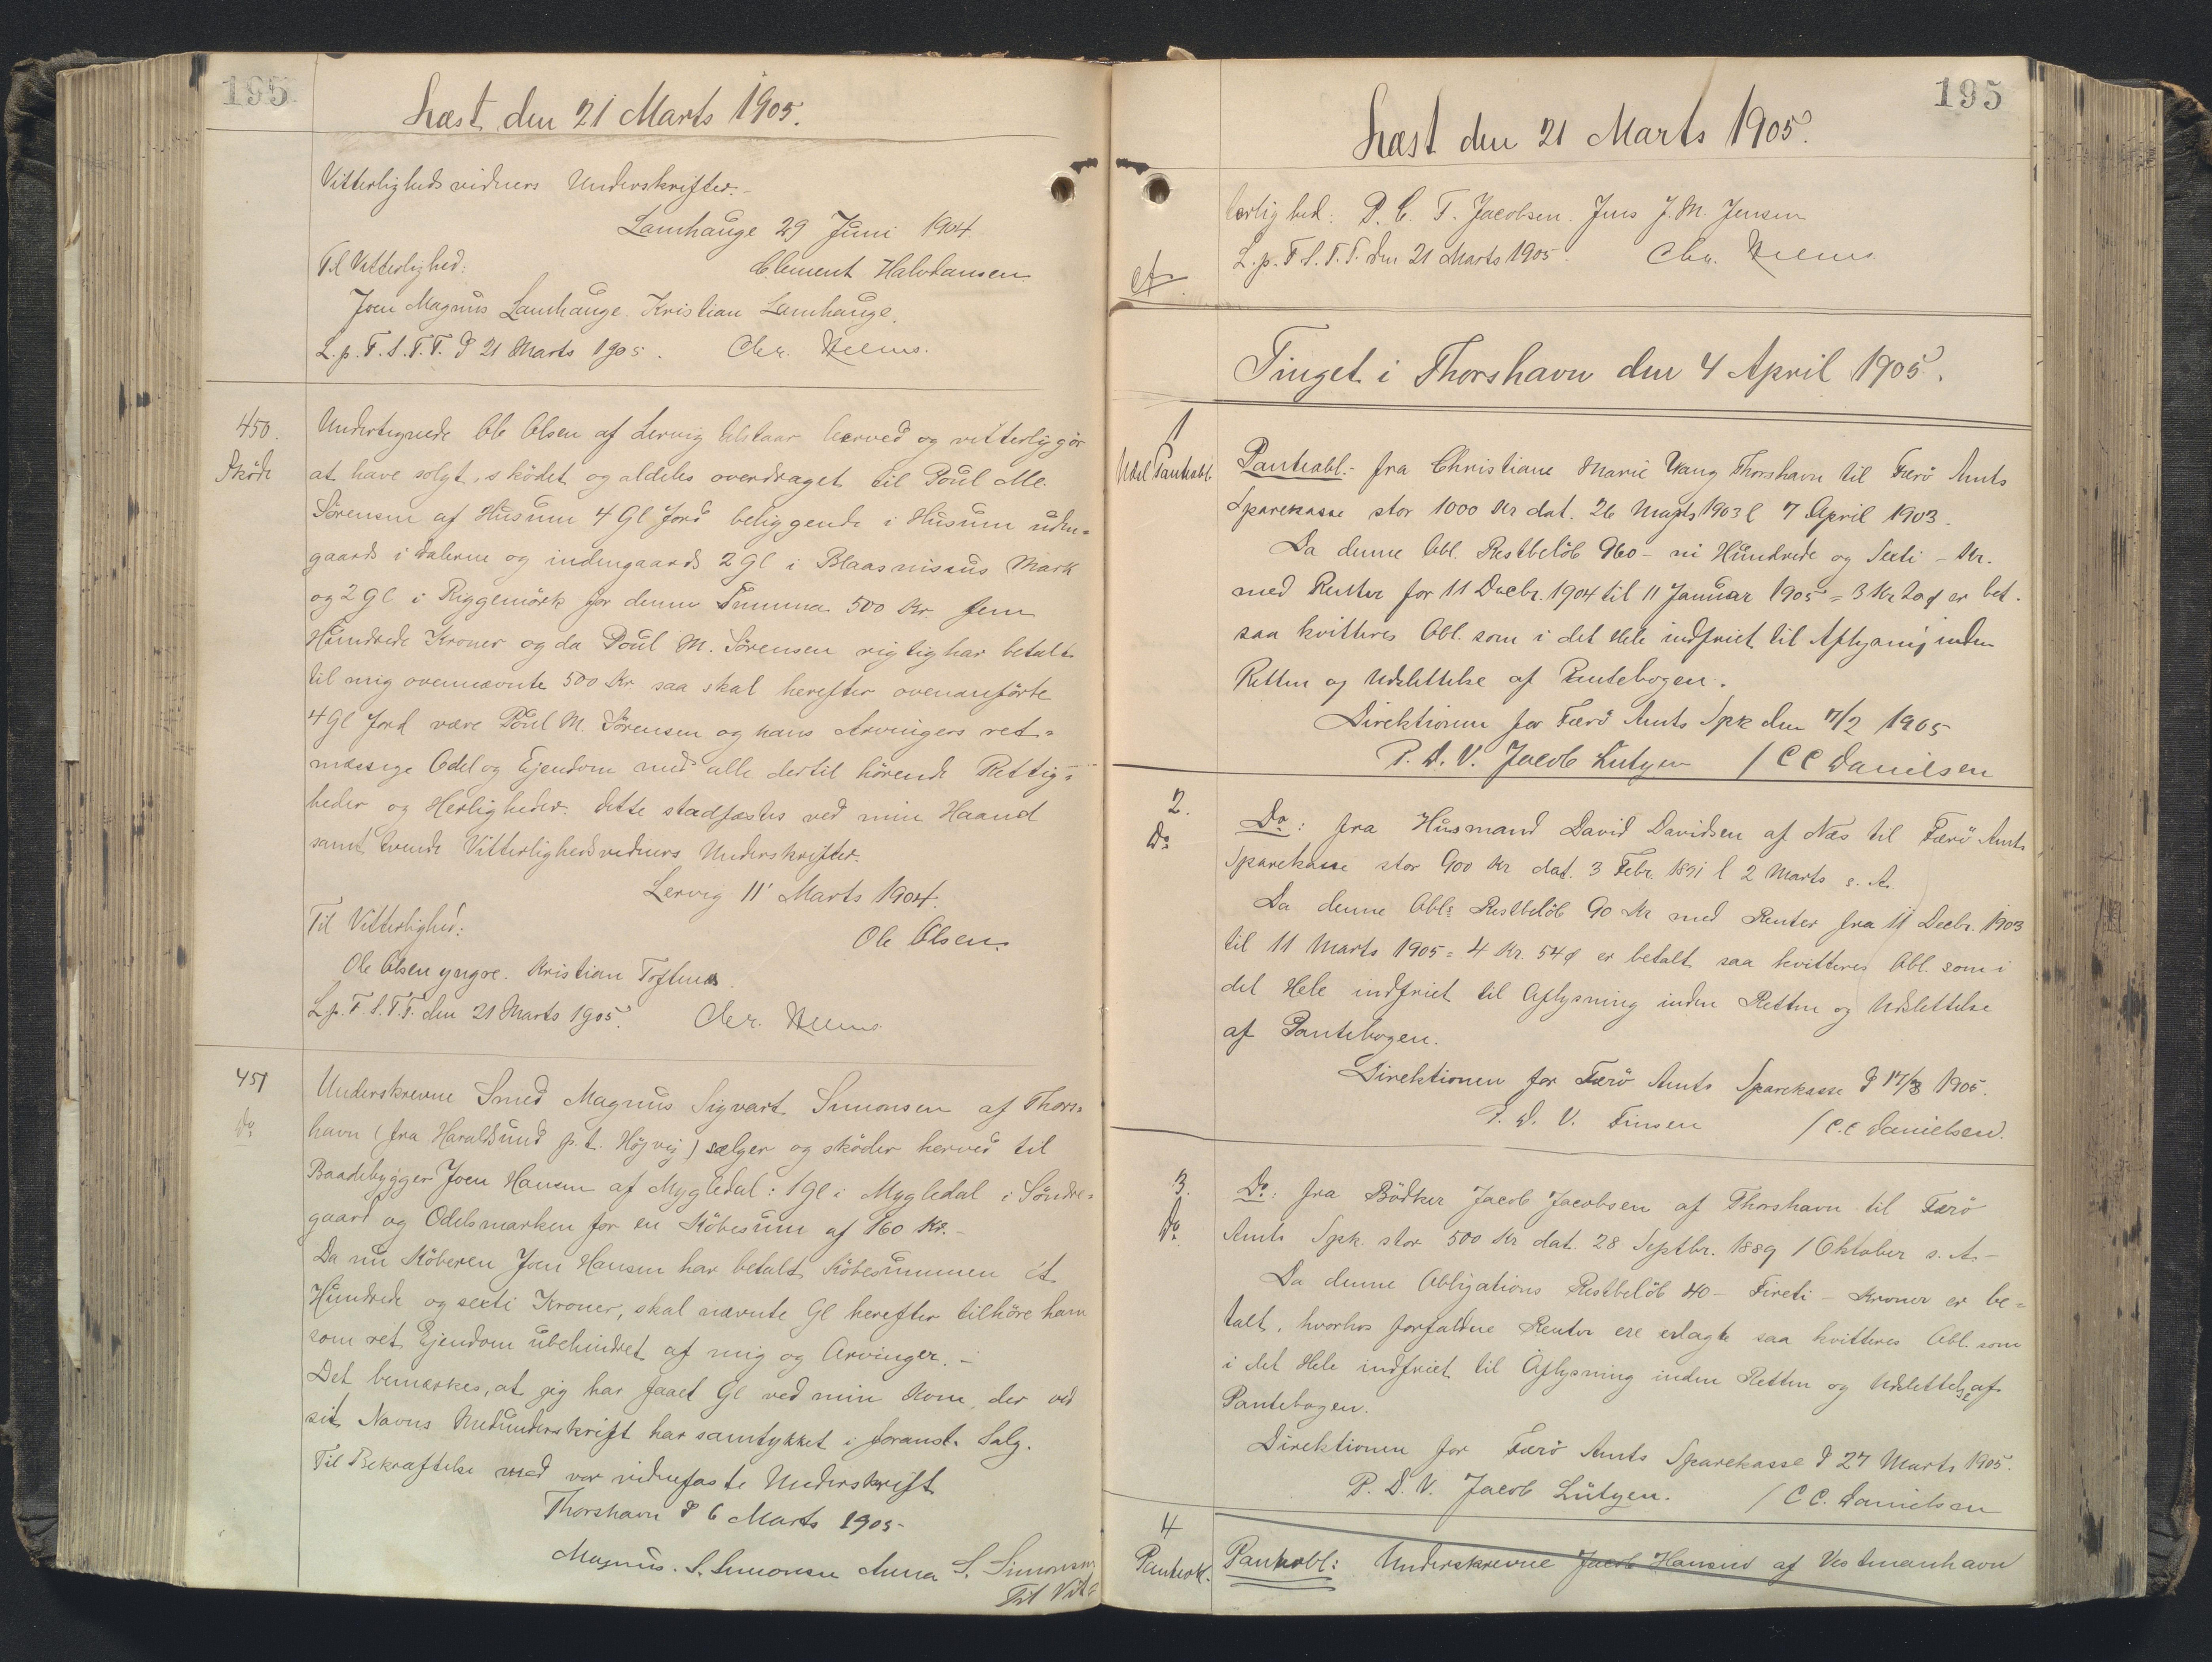 195
Læst den 21 Marts 1905.
Vitterlighedsvidners Underskrifter.-
Lamhauge 29 Juni 1904
Til Vitterlighed:
Clement Halvdansen
Joen Magnus Lamhauge. Kristian Lamhauge.
L. p. F. S. T. T. d 21 Marts 1905. Chr.
450.
Sköde
Undertegnede Ole Olsen af Lervig tilstaar herved og vitterliggör
at have solgt, sködet og aldeles overdraget til Poul M.
Sörensen af Husum 4 Gl Jord beliggende i Husum uden=
gaards i Dalerne og indengaards 2 Gl i Blaasnissus Mark
og 2 Gl i Riggemörk for denne Summa 500 Kr. fem
Hundrede Kroner og da Poul M. Sörensen rigtig har betalt
til mig ovennævnte 500 Kr saa skal herefter ovenanförte
4 Gl Jord være Poul M. Sörensen og hans Arvingers ret=
mæssige Odel og Ejendom med alle dertil hörende Rettig=
heder og Herligheder. Dette stadfæstes ved min Haand
samt tvende Vitterlighedsvidners Underskrifter.
Lervig 11' Marts 1904.
Til Vitterlighed:
Ole Olsen.
Ole Olsen yngre. Kristian Toftum.
L. p. F. S. T. T. den 21 Marts 1905. Chr.
451
Do
Underskrevne Smed Magnus Sigvart Simonsen af Thors=
havn (fra Haraldsund p. t. Höjvig) sælger og sköder herved til
Baadebygger Joen Hansen af Mygledal: 1 Gl i Mygledal i Söndre=
gaard og Odelsmarken for en Köbesum af 160 Kr.-
Da nu Köberen Joen Hansen har betalt Köbesummen ét
Hundrede og sexti Kroner, skal nævnte Gl herefter tilhöre ham
som ret Ejendom ubehindret af mig og Arvinger.-
Det bemærkes, at jeg har faaet Gl ved min Kone, der ved
sit Navns Medunderskrift har samtykket i foranst. Salg.
Til Bekræftelse med vor vidnefaste Underskrift
Thorshavn d 6 Marts 1905-
Magnus. S. Simonsen Anna S. Simonsen
Til Vit=
195
Læst den 21 Marts 1905.
terlighed: P. C. T. Jacobsen. Jens J. M. Jensen
L. p. F. S. T. T. den 21 Marts 1905. Chr.
Tinget i Thorshavn den 4 April 1905.
1
Udsl Panteobl
Panteobl.- fra Christiane Marie Wang Thorshavn til Færö Amts
Sparekasse stor 1000 Kr dat. 26 Marts 1903 l 7 April 1903.
Da denne Obl. Restbelöb 960 - ni Hundrede og Sexti - Kr.
med Renter for 11 Decbr. 1904 til 11 Januar 1905 = 3 Kr 20 ø er bet.
saa kvitteres Obl. som i det Hele indfriet til Aflysning inden
Retten og Udslettelse af Pantebogen.
Direktionen for Færö Amts Spk den 7/2 1905
P. D. V. Jacob Lützen / C C Danielsen
2.
Do
Do: fra Husmand David Davidsen af Næs til Færö Amts
Sparekasse stor 900 Kr dat. 3 Febr. 1891 l 2 Marts s. A.
Da denne Obl: Restbelöb 90 Kr med Renter fra 11 Decbr. 1903
til 11 Marts 1905 = 4 Kr. 54 ø er betalt saa kvitteres Obl. som i
det Hele indfriet til Aflysning inden Retten og Udslettelse
af Pantebogen.
Direktionen for Færö Amts Sparekasse d 17/3 1905.
P. D. V. Finsen / C. C Danielsen.
3.
Do
Do: fra Bödker Jacob Jacobsen af Thorshavn til Færö
Amts Spk. stor 500 Kr dat. 28 Septbr. 1889 l Oktober s. A.-
Da denne Obligations Restbelöb 40 - Fireti - Kroner er be=
talt, hvorhos forfaldne Renter ere erlagte saa kvitteres Obl. som
i det Hele indfriet til Aflysning inden Retten og Udslettelse af
Pantebogen.
Direktionen for Færö Amts Sparekasse d 27 Marts 1905.
P. D. V. Jacob Lützen. / C C. Danielsen
4
Panteobl.
Panteobl: Underskrevne Jacob Hansen af Vestmanhavn